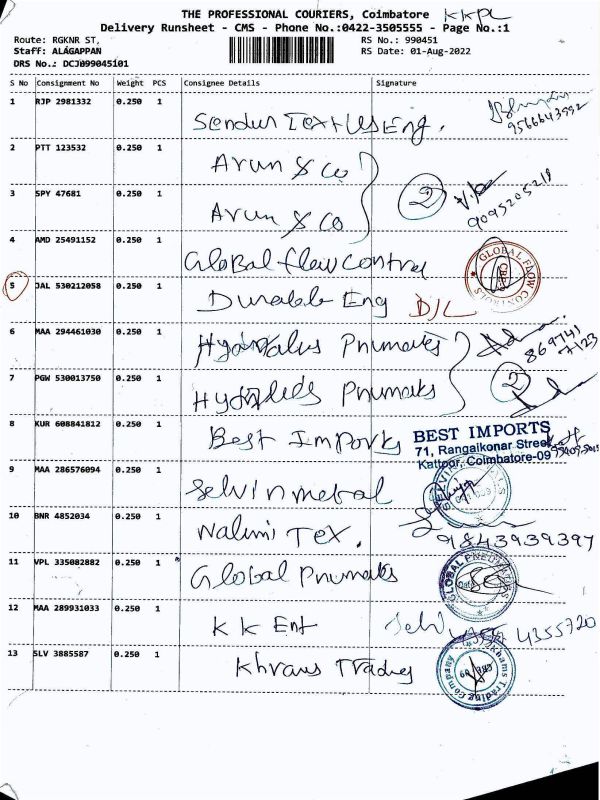 THE PROFESSIONAL COURIERS, Coimbatore KKPL
Delivery Runsheet - CMS - Phone No.:0422-3505555 - Page No.:1
Route: RGKNR ST, RS No.: 990451
Staff: ALAGAPPAN RS Date: 01-Aug-2022
DRS No.: DCJ099045101
S No Consignment No Weight PCS Consignee Details Signature
1 RJP 2981332 0.250 1
9566643992
2 PTT 123532 0.250 1 Arun & Co
3 SPY 47681 0.250 1 Arun & Co 2 9095205218
4 AMD 25491152 0.250 1 Global flow control GLOBAL FLOW CONTROLS CBE-6
5 JAL 530212058 0.250 1 Durable Eng D/L
6 MAA 294461030 0.250 1 Pnumatics 869741
7123
7 PGW 530013750 0.250 1 Pnumatics 2
8 KUR 608841812 0.250 1 Best Imports BEST IMPORTS
71, Rangaikonar Street
Kattoor, Coimbatore-09
9 MAA 286576094 0.250 1 Selvin metal
10 BNR 4852034 0.250 1 Tex. 9843939397
11 VPL 335082882 0.250 1 Global Pnumatks GLOBAL PNEUMATICS
12 MAA 289931033 0.250 1 K K Ent Selvi 4355720
13 SLV 3885587 0.250 1 Khrans Trading Khams Trading Company